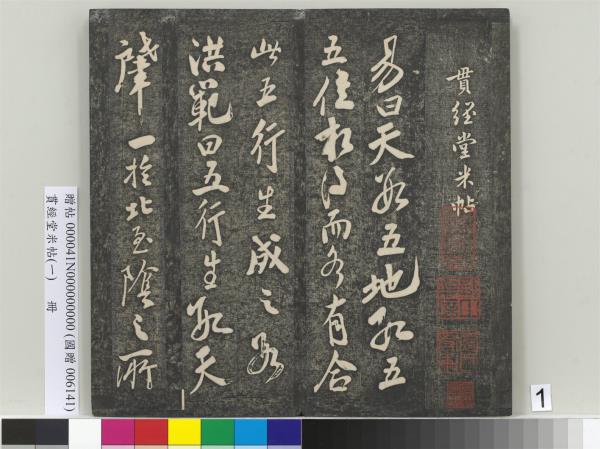 貫經堂米帖
易曰天數五地數五
五位相得而各有合
此五行生成之數
洪範曰五行生數天
肇一於北至陰之所
贈帖 000041N000000000 (國贈 006141)
貫經堂米帖(一) 冊
1